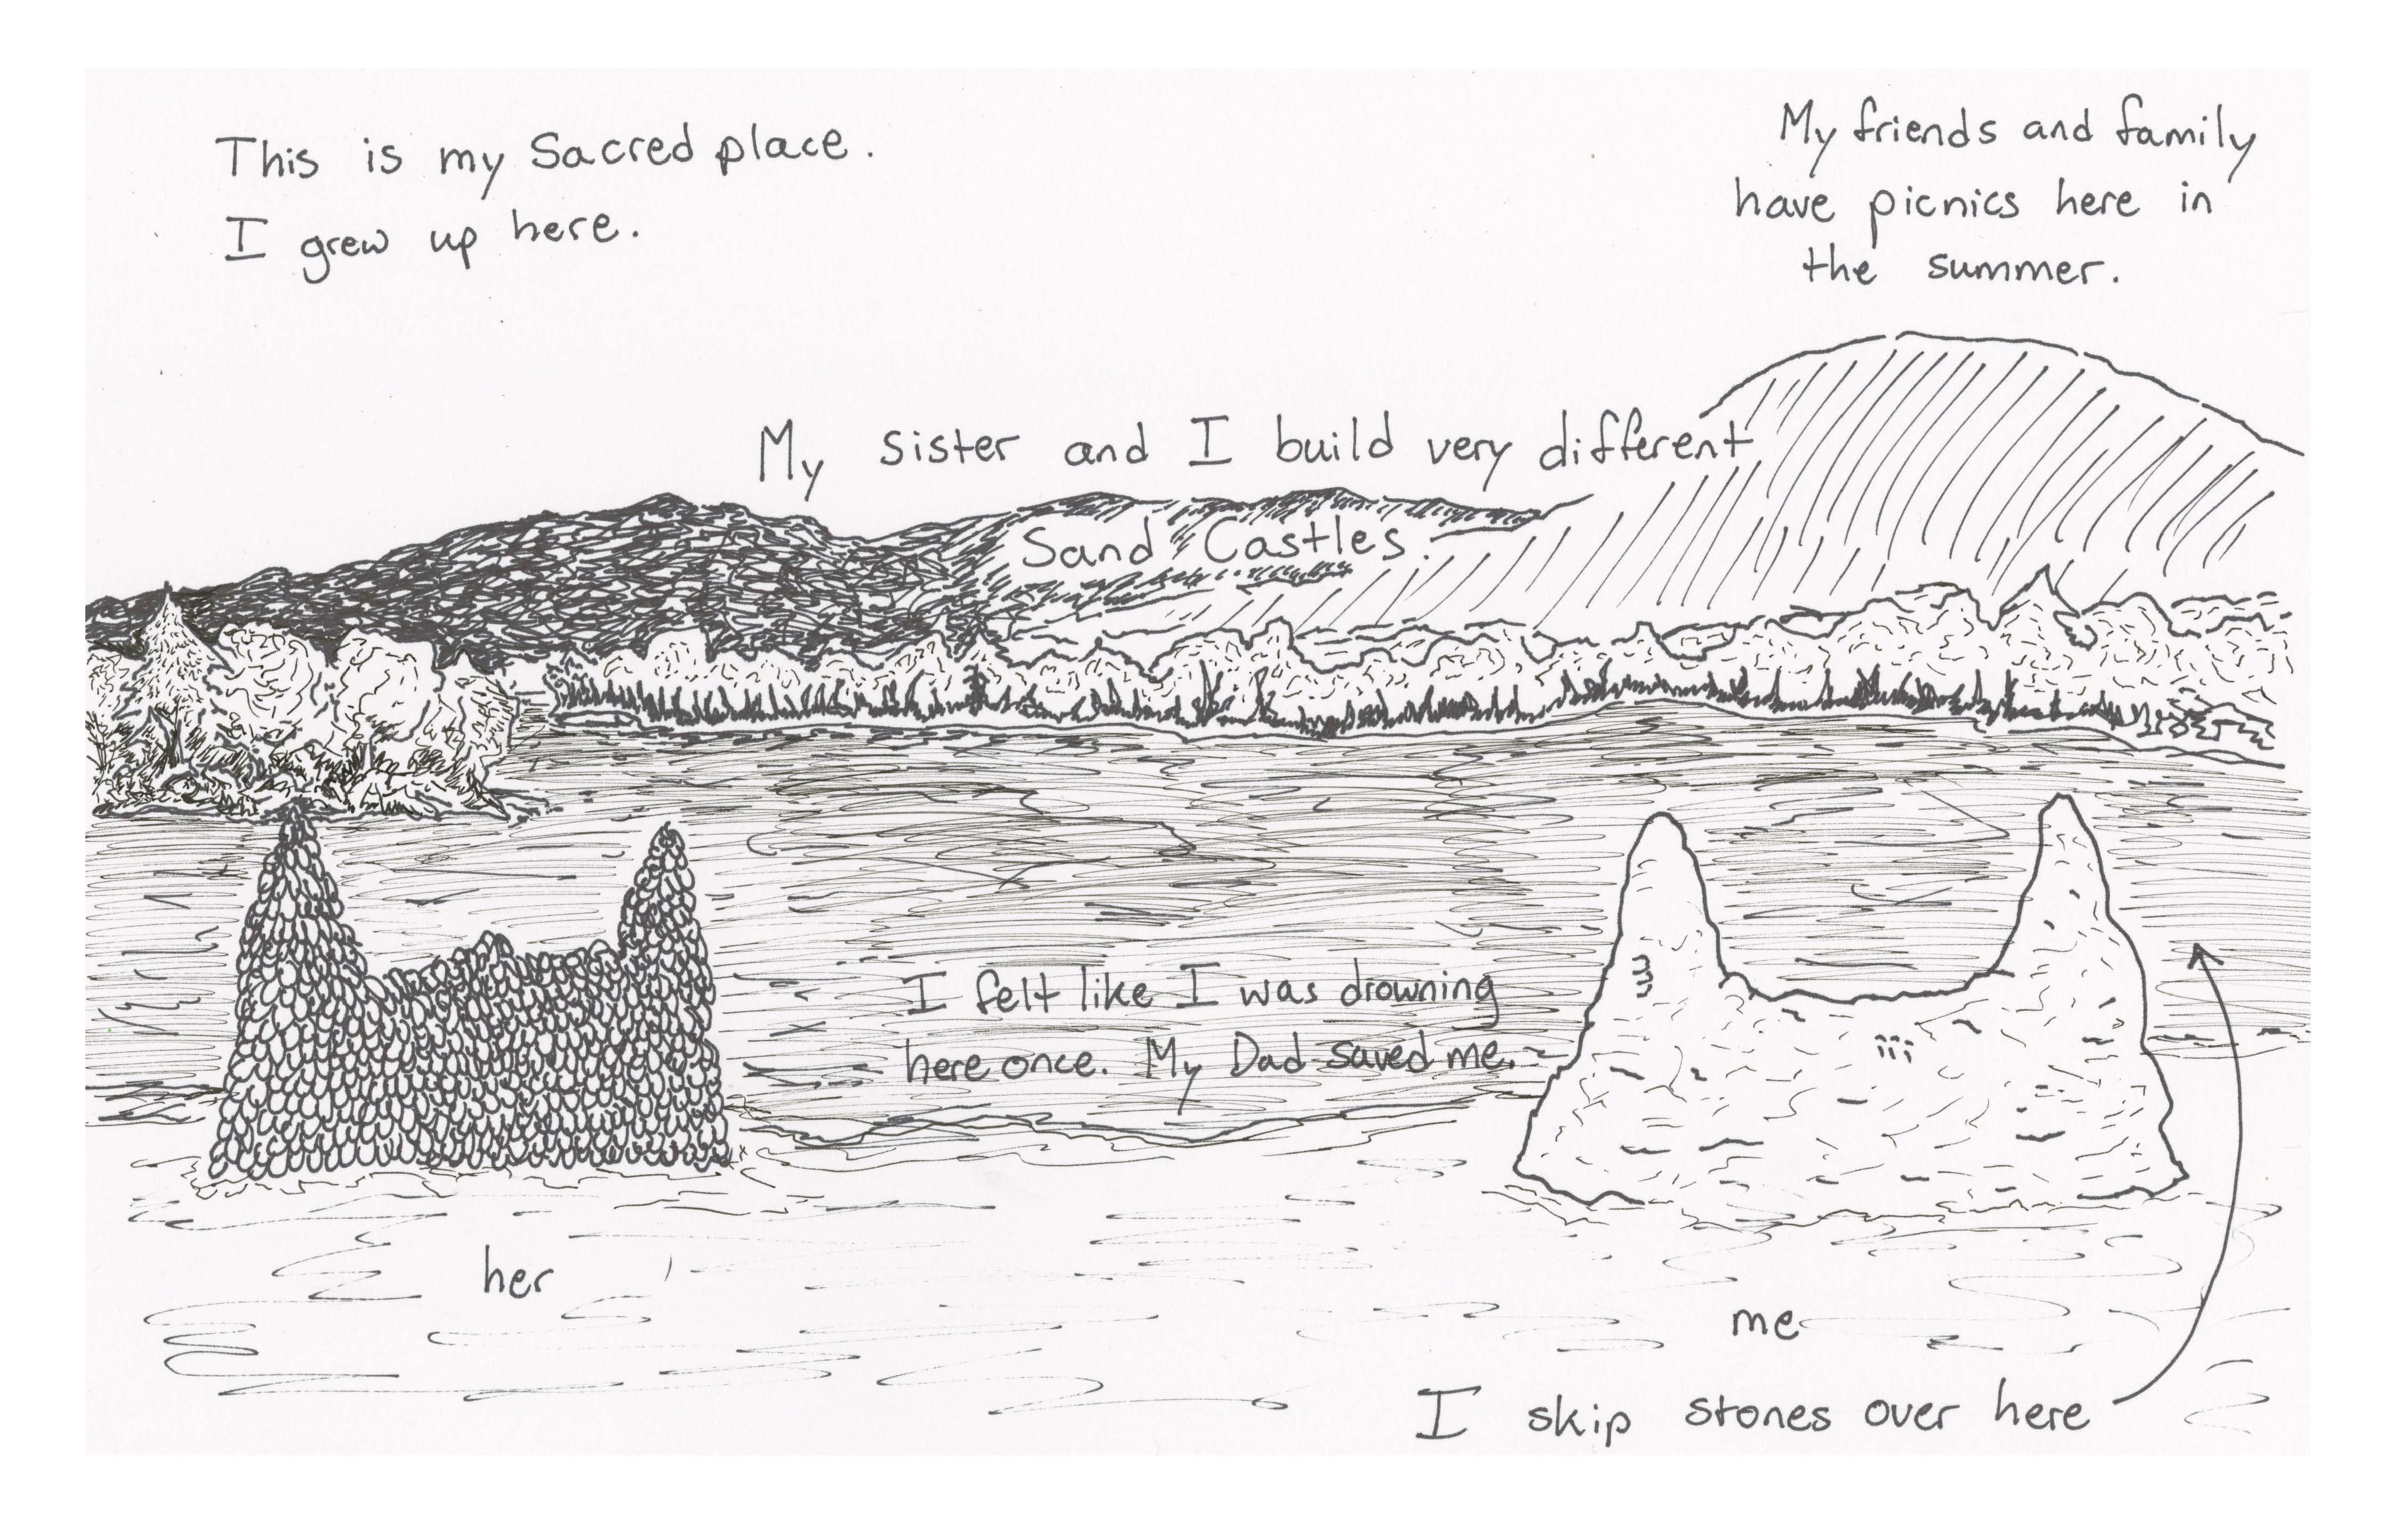 This is my Sacred place.
I grew up here.
My friends and family
have picnics here in
the summer.
My sister and I build very different
Sand Castles.
I felt like I was drowning
here once. My Dad saved me.
her
me
I skip stones over here